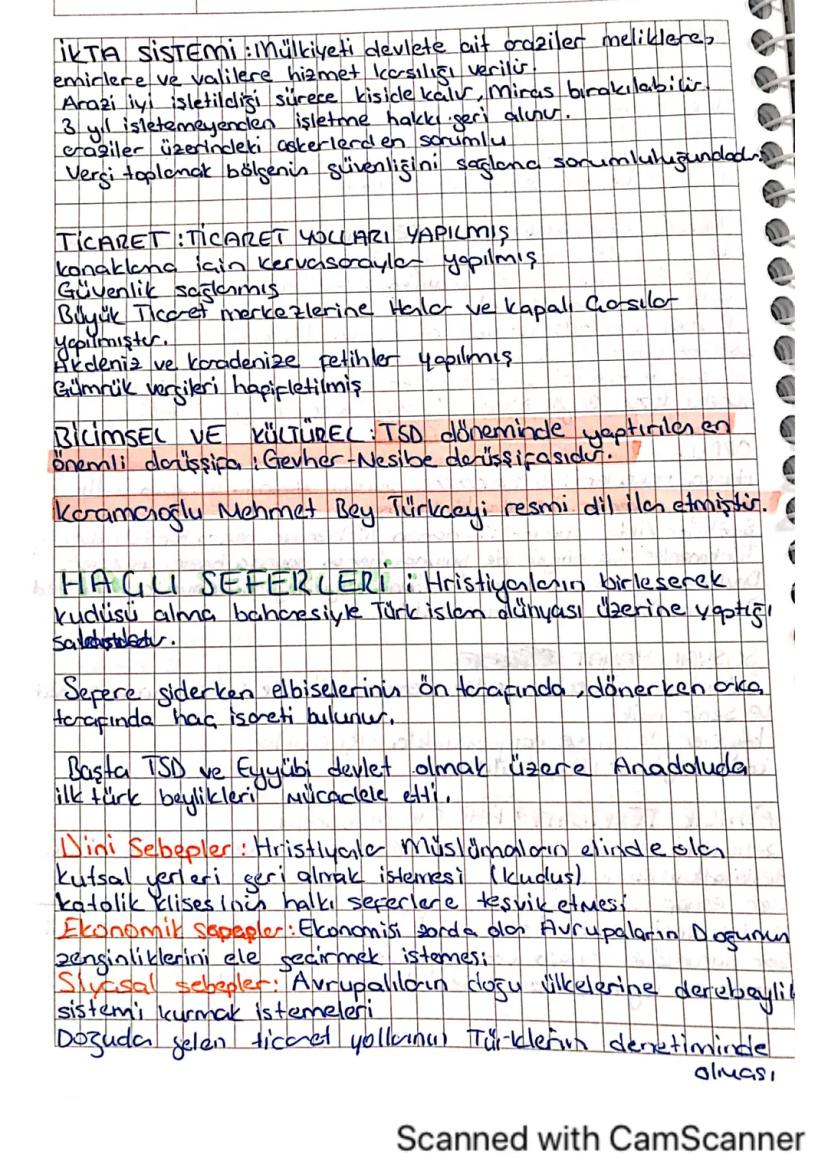 İKTA SİSTEMİ : Mülkiyeti devlete ait araziler meliklere,
emirlere ve valilere hizmet karsılığı verilir.
Arazi iyi işletildiği sürece kiside kalır, miras bırakılabilir.
3 yıl isletemeyenden işletme hakkı geri alınır.
araziler üzerindeki askerlerden sorumlu
Vergi toplamak bölgenin güvenliğini sağlama sorumluluğundadır.
TİCARET : TİCARET YOLLARI YAPILMIŞ
konaklama icin kervasaraylar yapılmış
Güvenlik sağlanmış
Büyük Ticaret merkezlerine Halar ve Kapalı Carsılar
yapılmıştır.
Akdeniz ve karadenize fetihler yapılmış
Gümrük vergileri hafifletilmiş
BİCİMSEL VE KÜLTÜREL : TSD döneminde yaptırılan en
önemli darüşşifa : Gevher-Nesibe darüşşifasıdır.
Karamanoğlu Mehmet Bey Türkceyi resmi dil ilan etmiştir.
HAÇLI SEFERLERİ : Hristiyanların birleserek
kudüsü alma bahanesiyle Türk islam dünyası üzerine yaptığı
Sefere giderken elbiselerinin ön tarafında, dönerken arka
tarafında haç isareti bulunur.
Başta TSD ve Eyyübi devlet olmak üzere Anadoluda
ilk türk beylikleri mücadele etti.
Dini Sebepler : Hristiyanlar müslümaların elinde olan
kutsal yerleri geri almak istemesi (kudus)
katolik klisesinin halkı seferlere teşvik etmesi
Ekonomik Sepepler : Ekonomisi zorda olan Avrupaların Doğunun
zenginliklerini ele gecirmek istemesi
Siyasal sebepler : Avrupalıların doğu ülkelerine derebaylik
sistemi kurmak istemeleri
Doğuda gelen ticaret yollarının Türklerin denetiminde
olması
Scanned with CamScanner